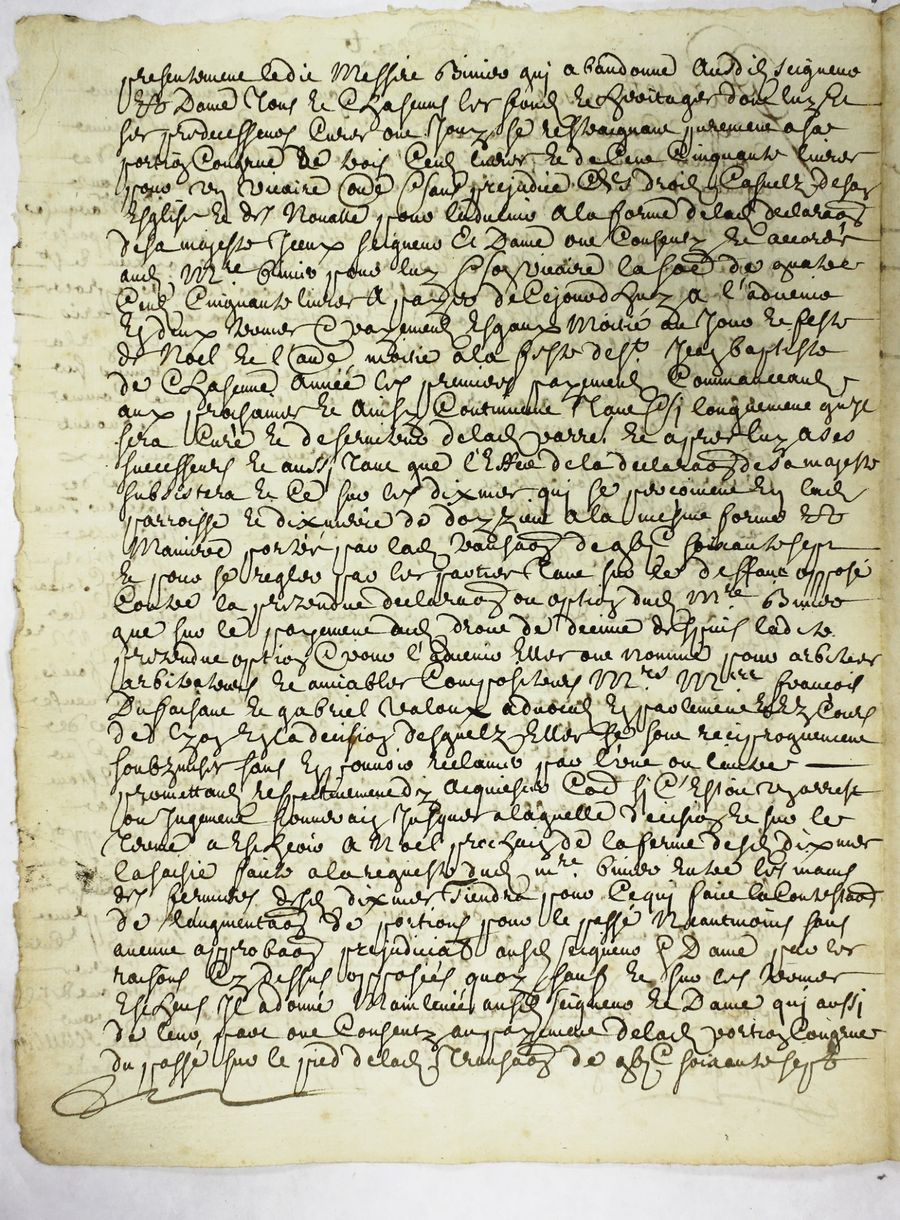 presentement ledit Messire Binier qui abandonne Ausdits seigneur
Et Dame Tous Et Chascuns les fonds Et heritages dont luy Et
ses predecesseurs Curés ont Jouy se restraignant purement a sa
portion Congrue de trois Cents livres Et de Cent Cinquante livres
pour un vicaire sans prejudice des droits Casuelz de son
Esglise Et des Novalles pour l'advenir A la forme de lad declaraon
de sa majesté Iceux seigneur Et Dame ont Consenty Et accordé
aud Mre binier pour luy son vicaire la so᷑e de quatre
Cents Cinquante livres A payer de Cejourdhuy A l'advenir
En deux termes Et payements Esgaux Moitié au Jour Et feste
de Noel Et l'autre moitié a la feste de St Jean baptiste
de Chascune Année les premiers payements Commanceants
aux prochaines Et Ainsy Continuer Tant si longuement quil
sera Curé Et deserviteur de lad parre. Et apres luy a ses
successeurs Et aussi Tant que l'Effet de la declaraon de sa majesté
subsistera Et Ce sur les dixmes qui se percoivent En lad
parroisse Et dixmerie de a la mesme forme Et
Maniere portée par lad transaon de gbjC soixante sept
Et pour se regler par les parties Tant sur le deffaut opposé
Contre la pretendue declaraon ou option dud Mre Binier
que sur le payement dud droit de decime despuis ladite
pretendue option Et pour l'advenir Elles ont nommé pour arbitres
arbitrateurs Et amiables Compositeurs Mrs Mres francois
Et gabriel Valoux advocats En parlement Et Es Cours
de Lyon En la decision desquelz Elles se sont reciproquement
soubzmises sans En pouvoir reclamer par l'une ou l'autre
promettants respectivement d'y Acquiescer Co᷑e si C'Estoit un arrest
ou Jugement souverain Jusques a laquelle decision Et sur le
Terme a Escheoir a Noel prochain de la ferme desd dixmes
la saisie faite a la requeste dud mre. binier Entre les mains
des fermiers desd dixmes Tiendra pour Ce qui fait la Contestaon
de l'augmentaon de portion pour le passé Neantmoins sans
aucune approbaon prejudicia᷑ble ausd seigneur Et Dame par les
raisons Cy dessus opposées quoy sauf Et sur les termes
Escheus Il a donné Mainlevée ausd seigneur Et Dame qui aussi
de leur part ont Consenty au payement de lad portion Congrue
du passé sur le pied de lad Transaon de gbjC soixante sept